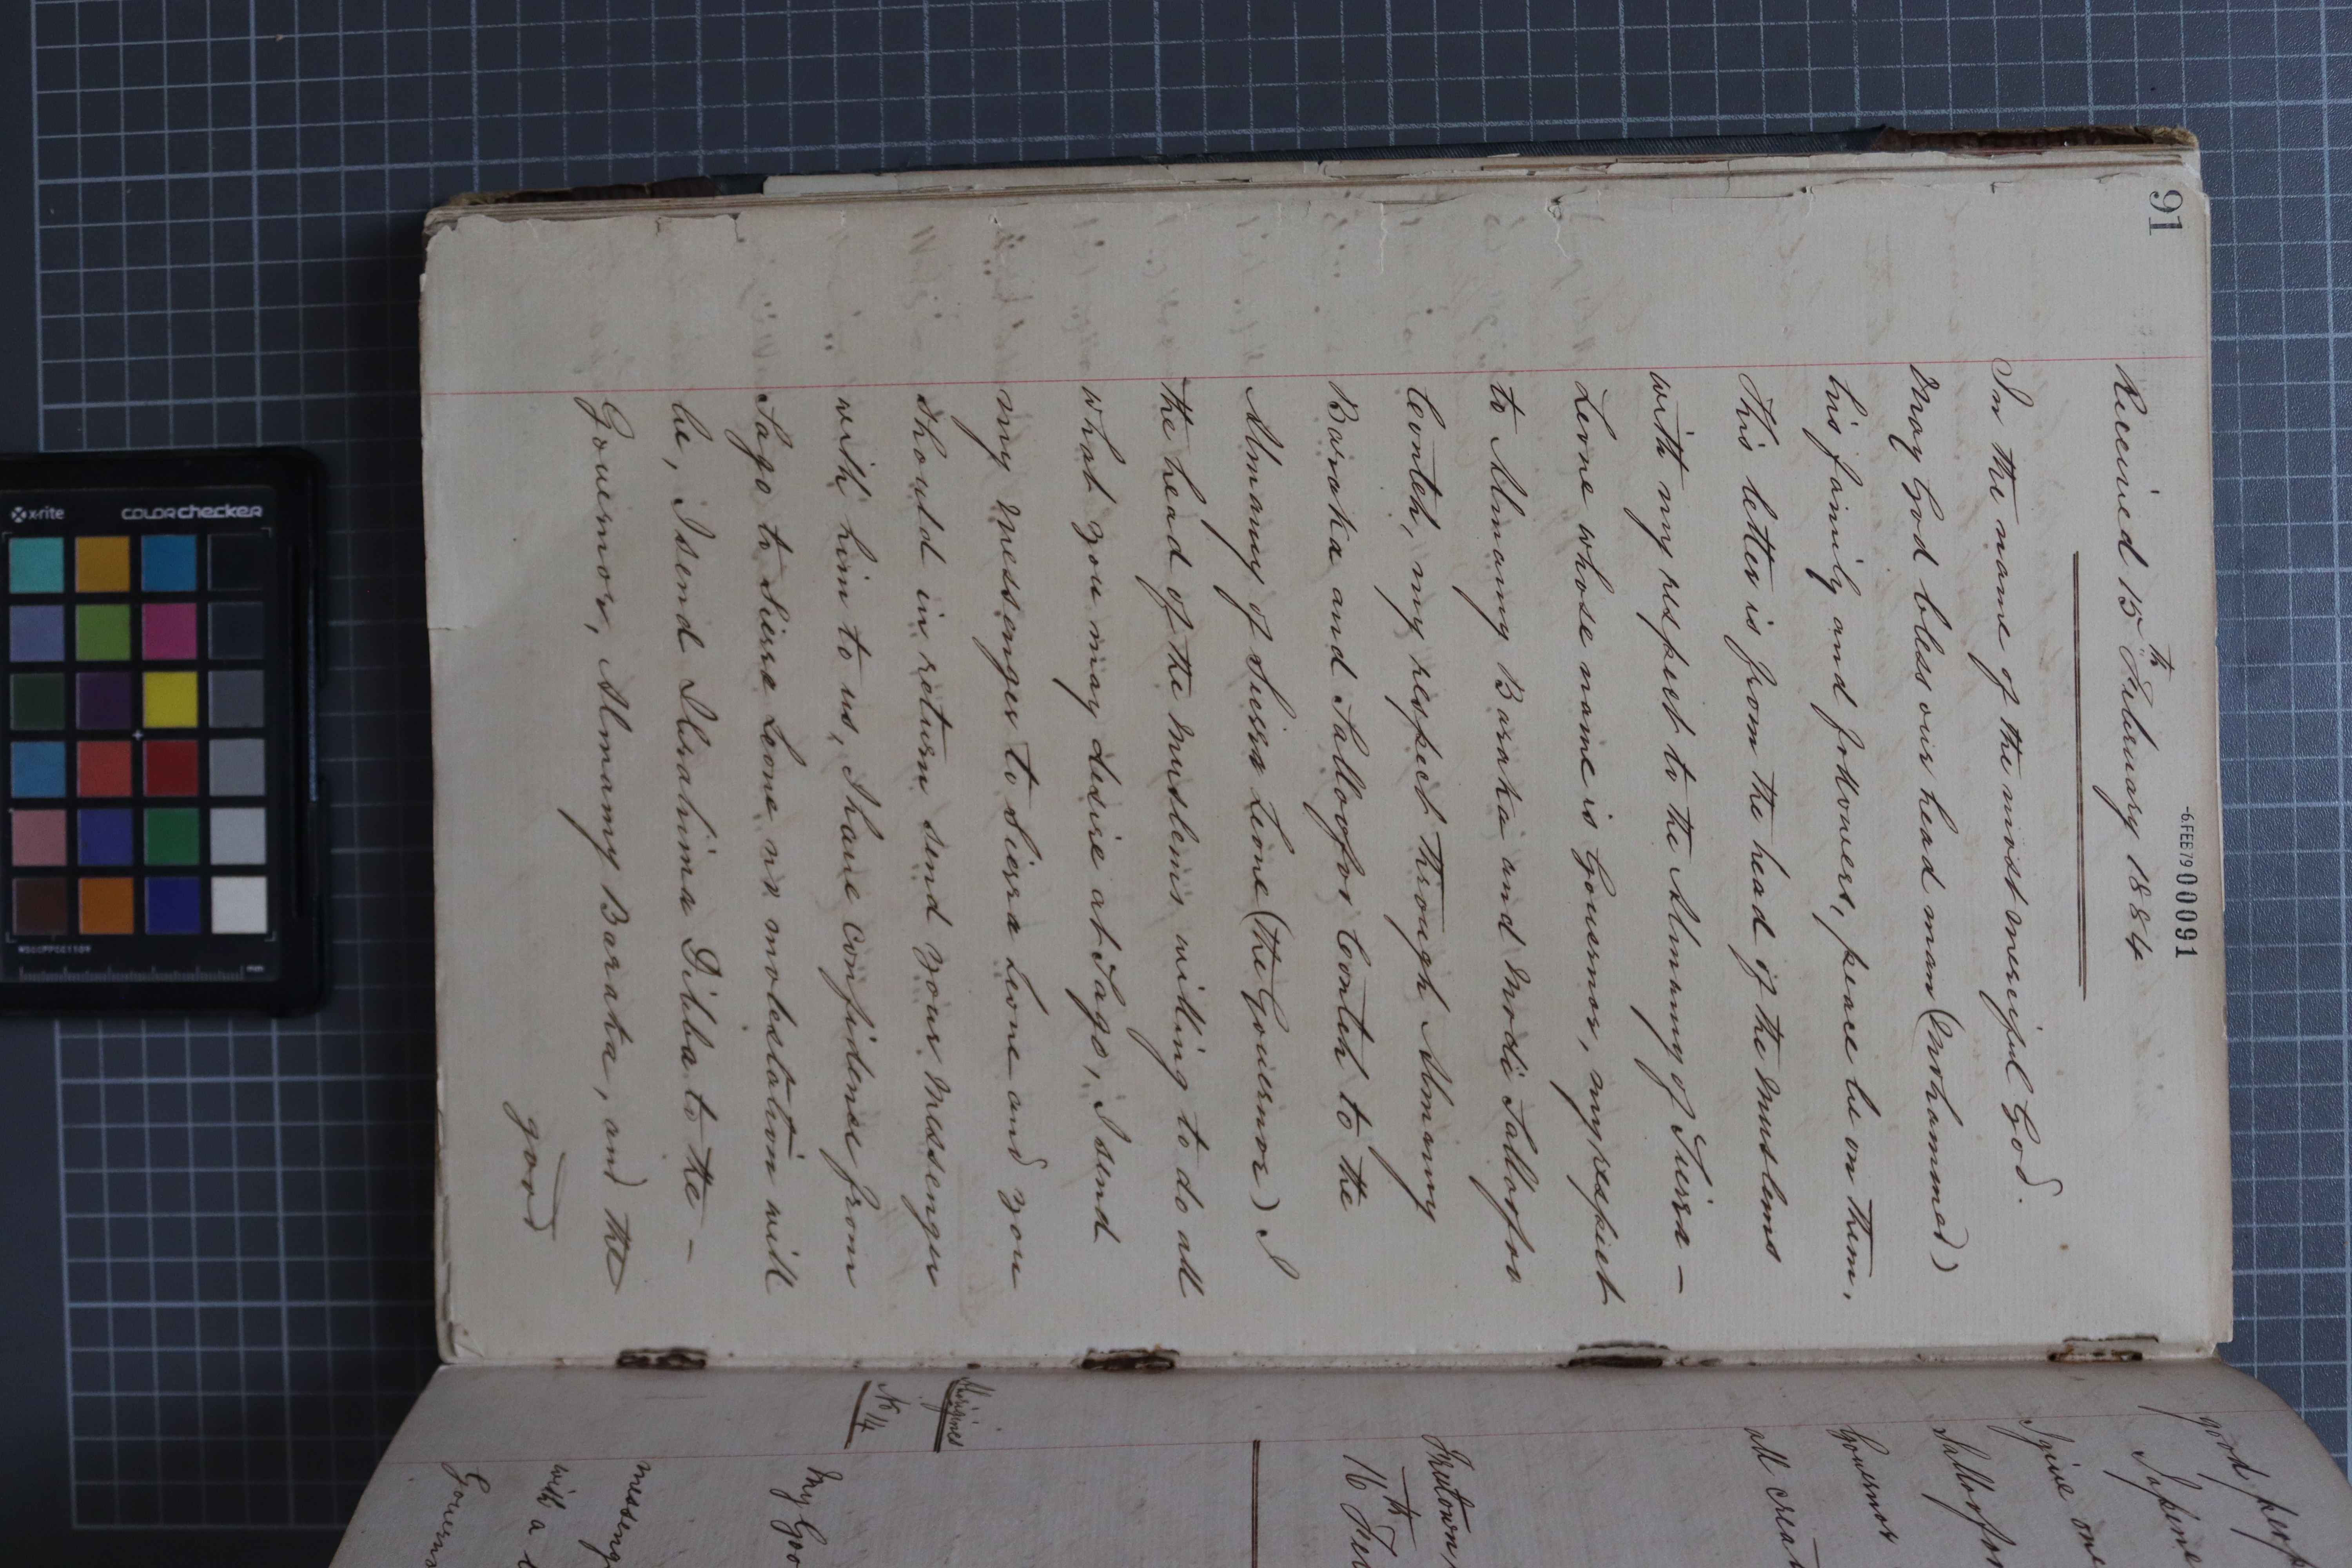 91
-6.FEB79 000091
Received 15th February 1884
In the name of the most merciful God.
May God bless our head man (Mohammed)
his family and followers, peace be on them.
This letter is from the head of the Muslems
with my respect to the Almany of Sierra -
Leone whose name is Governor, my respect
to Almany Baraka and Modi Sallofoo
Conteh, my respect through Almany
Baraka and Salloofoo Conteh to the
Almany of Sierra Leone (the Governor) I
the head of the Muslems willing to do all
what you may desire at Sago, I send
my messenger to Sierra Leone and you
should in return send your messenger
with him to us, I have confidence from
Sago to Sierra Leone no molestation will
be, I send Ibrahima Dibba to the -
Governor, Almany Baraka, and the
good
good peop
I give one
Salloofoo
Governor
all crea
Freetown,
16th Fe
Aborigines
No 14
My Goo
messeng
with a
Govern
x-rite
colorchecker